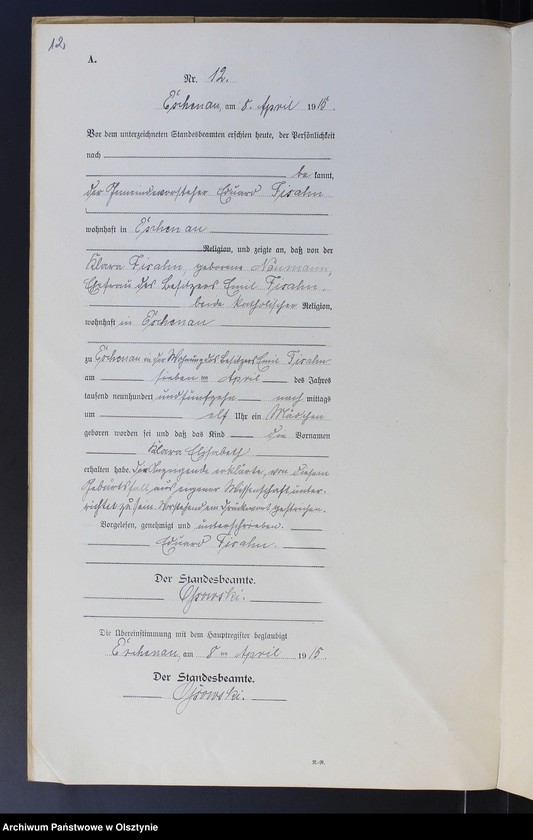 12.
A.
Nr. 12.
Eschenau, am 8. April 1915.
Vor dem unterzeichneten Standesbeamten erschien heute, der Persönlichkeit
nach
be kannt,
der Gemeindevorsteher Eduard Fisahn
wohnhaft in Eschenau
Religion, und zeigte an, daß von der
Klara Fisahn, geborene Neumann,
Ehefrau des Besitzers Emil Fisahn,
beide katholischer Religion,
wohnhaft in Eschenau
zu Eschenau in der Wohnung des Besitzers Emil Fisahn
am sieben ten April des Jahres
tausend neunhundert und fünfzehn nach mittags
um elf Uhr ein Mädchen
geboren worden sei und daß das Kind die Vornamen
Klara Elisabeth
erhalten habe. Der Anzeigende erklärte, von diesem
Geburtsfall aus eigener Wissenschaft unter-
richtet zu sein. Vorstehend ein Druckwort gestrichen.
Vorgelesen, genehmigt und unterschrieben.
Eduard Fisahn.
Der Standesbeamte.
Die Übereinstimmung mit dem Hauptregister beglaubigt
Eschenau, am 8 ten April 1915.
Der Standesbeamte.
R.-R.
Archiwum Państwowe w Olsztynie